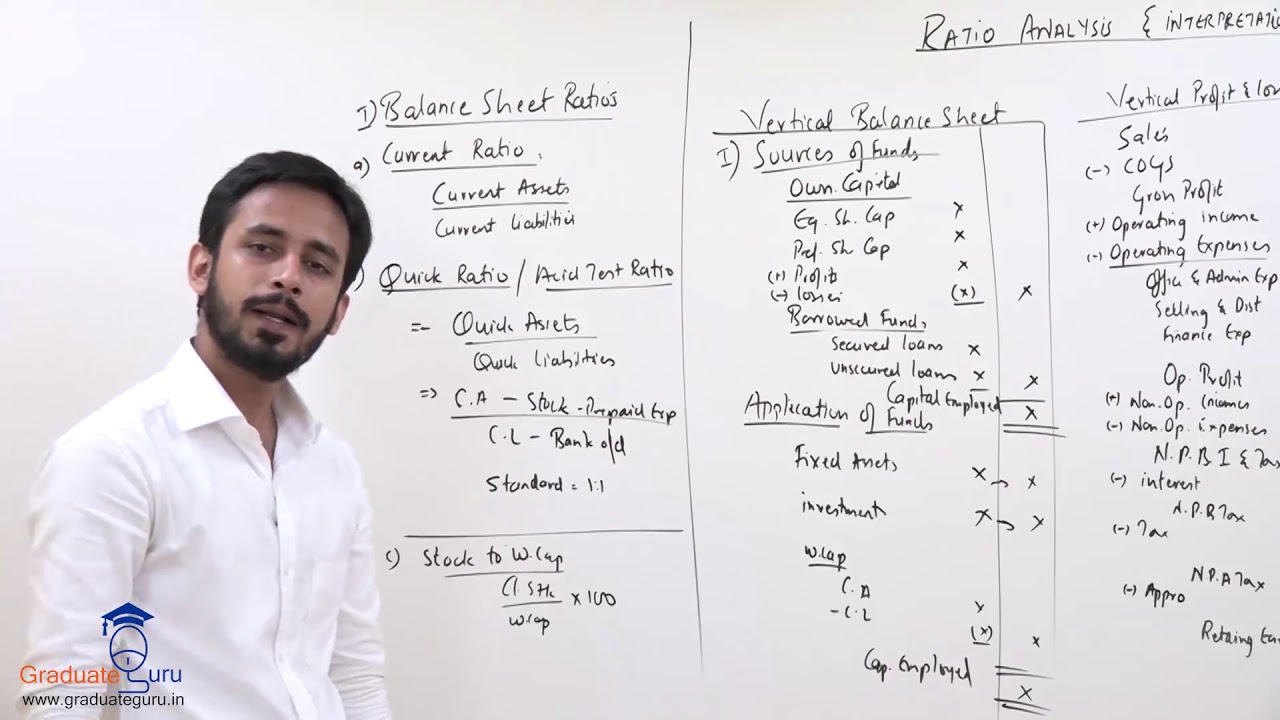 RATIO ANALYSIS & INTERPRETATIO
I) Balance Sheet Ratios
a) Current Ratio.
Current Assets
Current Liabilities
) Quick Ratio / Acid Test Ratio
=- Quick Assets
Quick Liabilities
=> C.A - Stock - Prepaid Exp
C.L - Bank o/d
Standard = 1:1
c) Stock to W.Cap
Cl. Stk × 100
W.cap
Vertical Balance Sheet
I) Sources of Funds
Own. Capital
Eq. Sh. Cap x
Pref. Sh Cap x
(+) Profits x
(-) losses (x) x
Borrowed Funds
Secured loans x
unsecured loans x x
Capital Employed x
Application of Funds
Fixed Assets x → x
investment x → x
W.cap
C.A x
- C.L (x) x
Cap. Employed x
Vertical Profit & los
Sales
(-) COGS
Gross Profit
(+) Operating income
(-) Operating Expenses
Offic & Admin Exp
Selling & Dist
Finance Exp
Op. Profit
(+) Non. Op. Incomes
(-) Non. Op. Expenses
N.P.B I & Tax
(-) interest
N.P.B Tax
(-) Tax
N.P.A Tax
(-) Appro
Retaing Ear
Graduate Guru
www.graduateguru.in